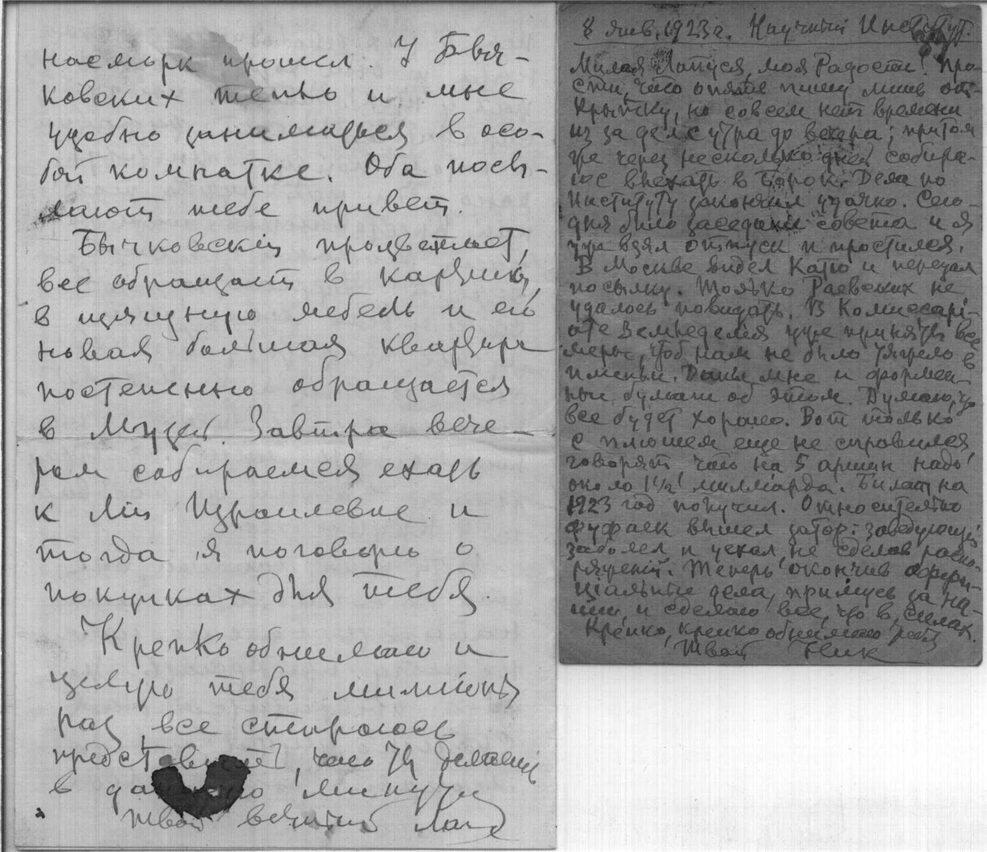 насморк прошел. У Быч-
ковских тепло и мне
удобно заниматься в осо-
бой комнатке. Оба посы-
лают тебе привет.
Бычковский процветает,
все обращает в картины,
в изящную мебель и его
новая большая квартира
постепенно обращается
в Музей. Завтра вече-
ром собираемся ехать
к Израилевне и
тогда я поговорю о
покупках для тебя.
Крепко обнимаю и
целую тебя миллионы
раз, все стараюсь
представить, что Ты делаешь
в минуту
Твой вечный
8 янв. 1923 г. Научный Институт.
Милая Лапуся, моя Радость! Про-
сти, что опять пишу лишь от-
крытку, но совсем нет времени
из за дел с утра до вечера; притом
же через несколько дней собира-
юс выехать в Борок. Дела по
Институту закончил удачно. Сего-
дня было заседание совета и я
уже взял отпуск и простился.
В Москве видел Катю и передал
посылку. Только Раевских не
удалось повидать. В Комиссари-
ате Земледелия уже приняты все
меры, чтоб нам не было тяжело в
имении. Даны мне и формен-
ные бумаги об этом. Думаю, что
все будет хорошо. Вот только
с плюшем еще не справился
говорят что на 5 аршин надо
около 1½ миллиарда. Билет на
1923 год получил. Относительно
фуфаек вышел затор: заведующий
заболел и уехал не сделав распо-
ряжений. Теперь окончив офици-
альные дела, примусь за на-
ши и сделаю все, что в силах.
Крепко, крепко обнимаю
Твой Ник